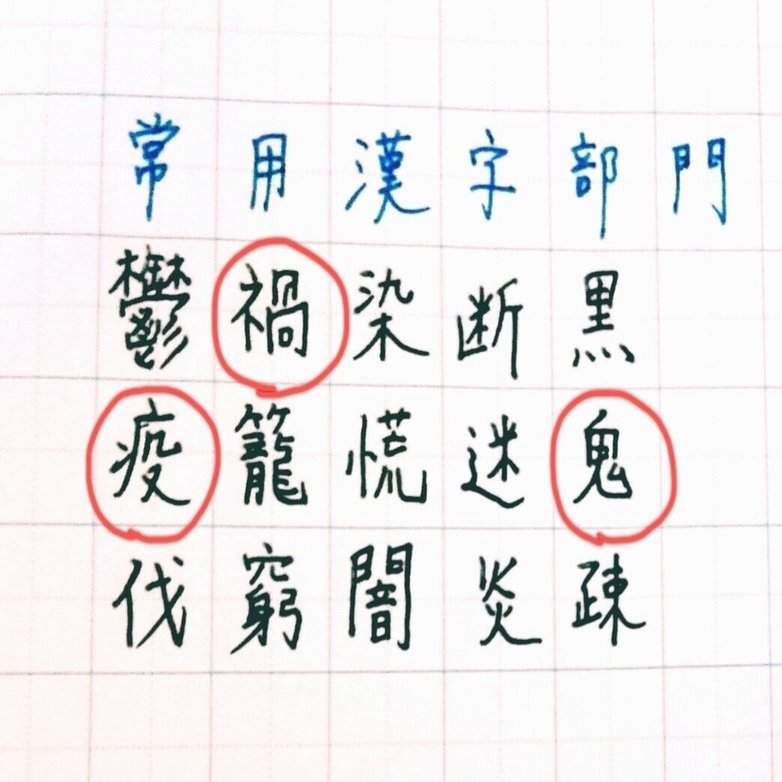 常用漢字部門
鬱禍染断黒
疫籠慌迷鬼
伐窮闇炎疎